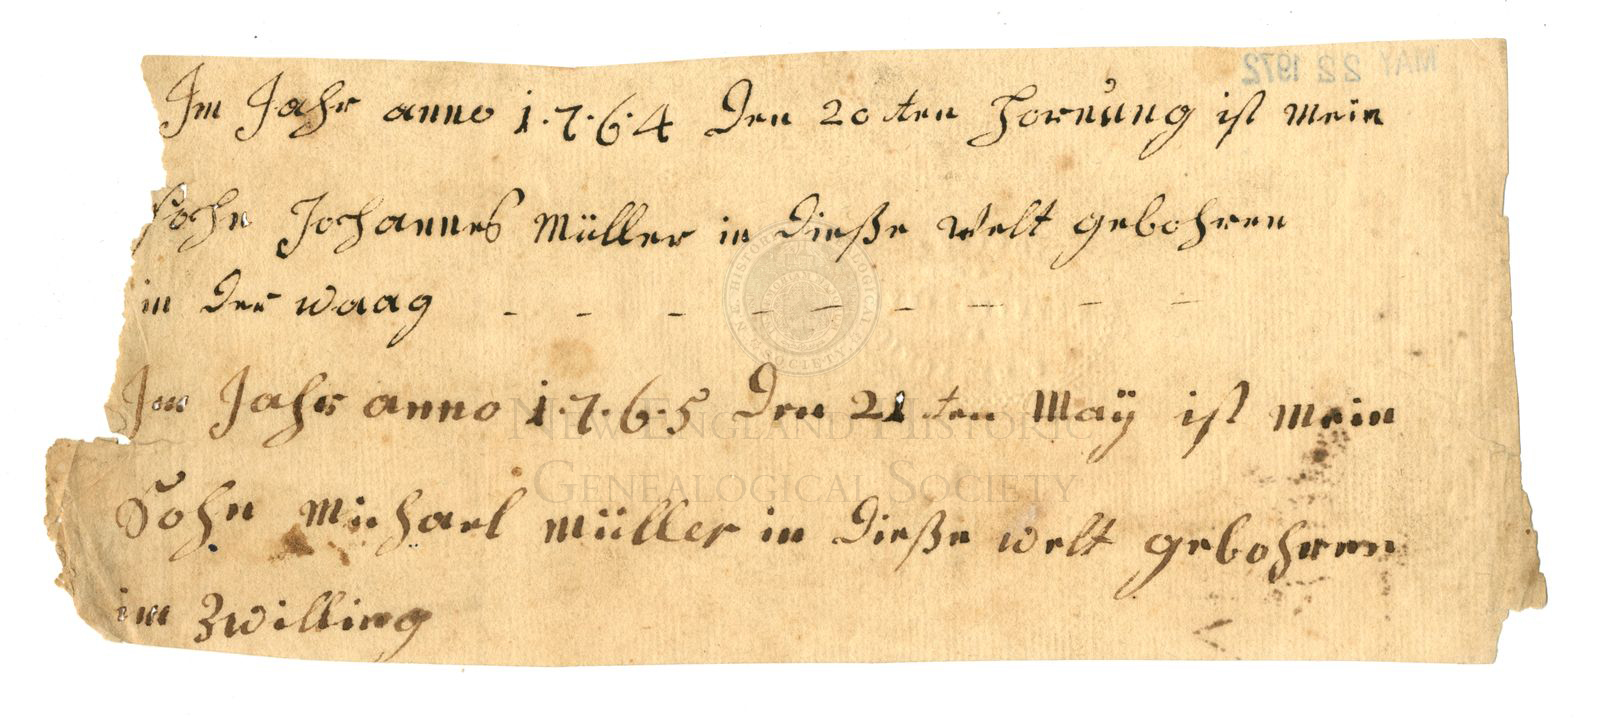 MAY 22 1972
Im Jahr anno 1·7·6·4 Den 20 ten Hornung ist mein
sohn Johannes Müller in dieße Welt gebohren
in der waag - - - - - - - - -
Im Jahr anno 1·7·6·5 Den 21 ten Maÿ ist mein
Sohn Michael Müller in dieße welt gebohren
im Zwilling
NEW ENGLAND HISTORIC
GENEALOGICAL SOCIETY